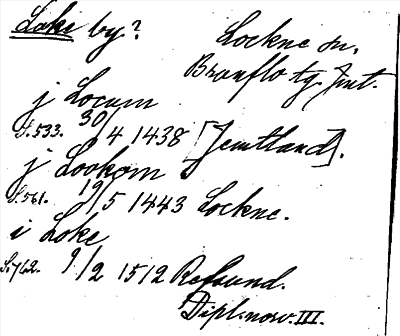 Loke by?
Lockne sn.
Brunflo tg. Jmt.
j Locum
S.533. 30/4 1438 [Jemtland].
j Lookom
S.561. 19/5 1443 Lockne.
i Loke
S.762. 9/2 1512 Refsund.
Dipl. norv. III.